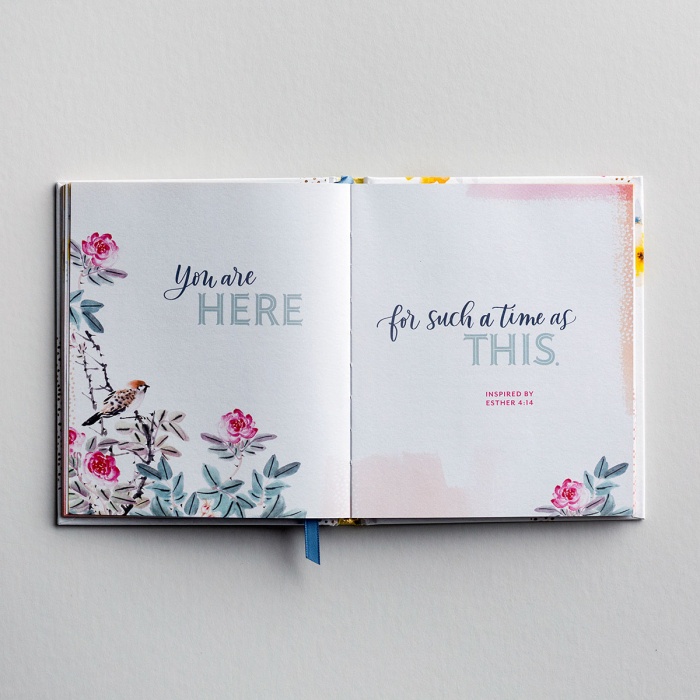 You are
HERE
for such a time as
THIS.
INSPIRED BY
ESTHER 4:14